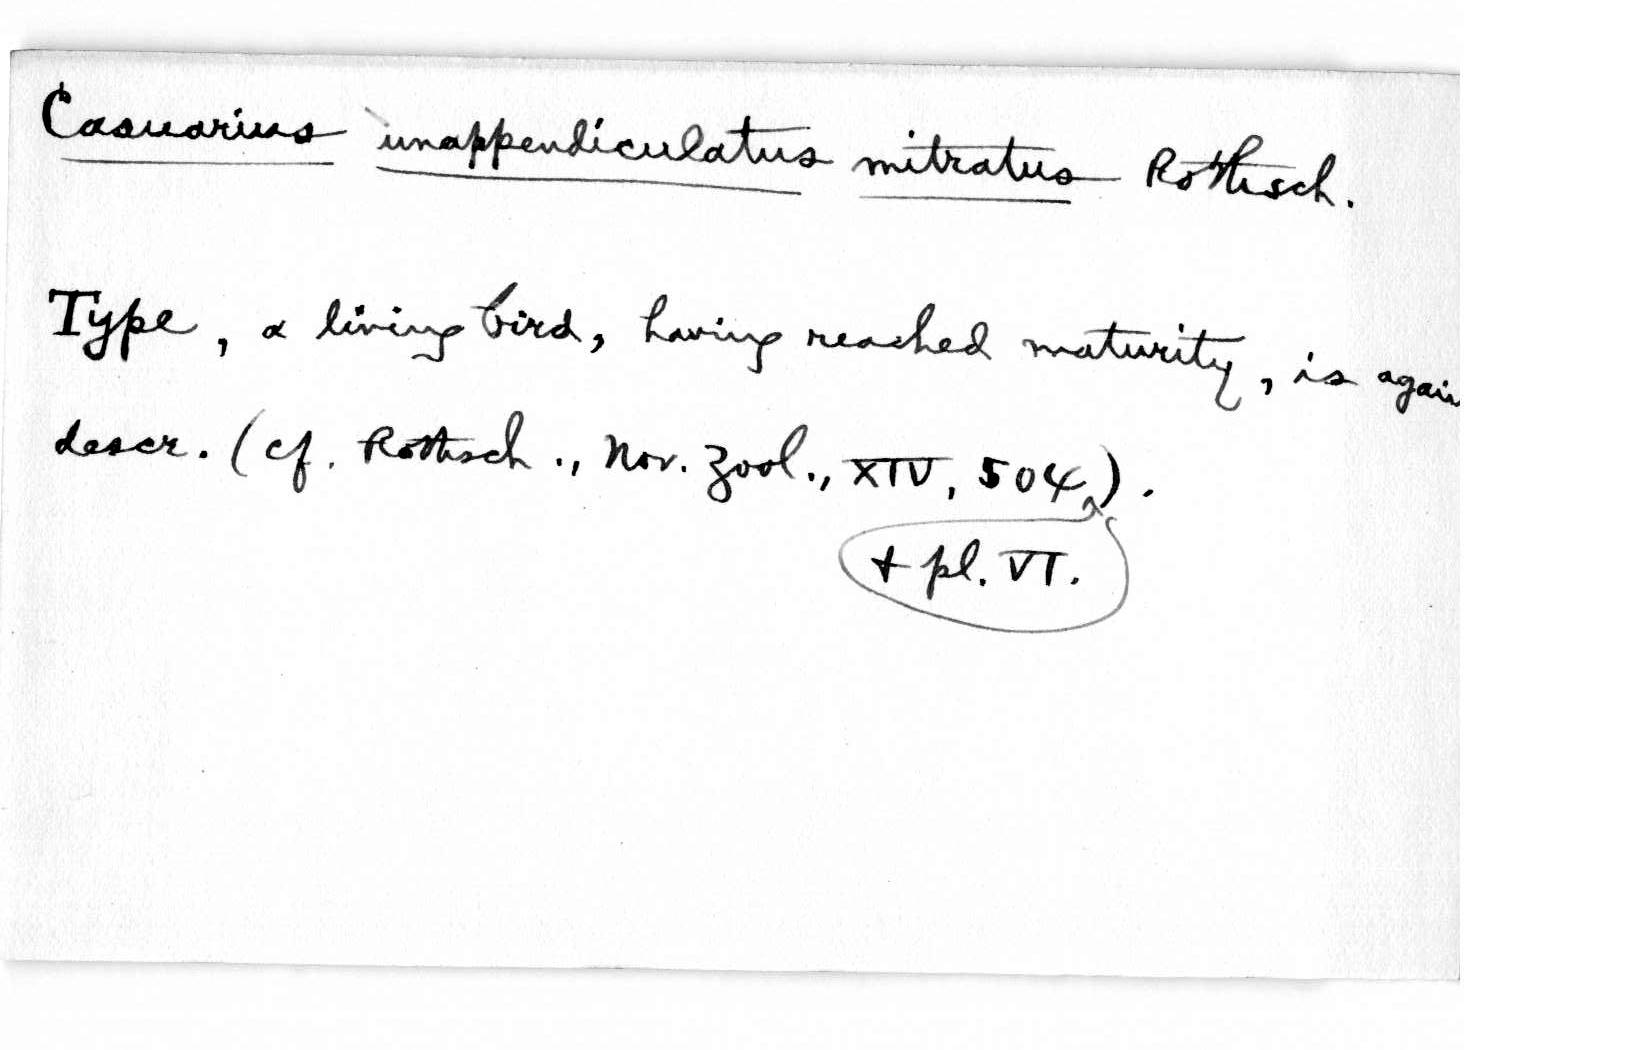 Casuarius unappendiculatus mitratus Rothsch.
Type, a living bird, having reached maturity, is again
descr. (cf. Rothsch., Nov. Zool., XIV, 504).
+ pl. VI.